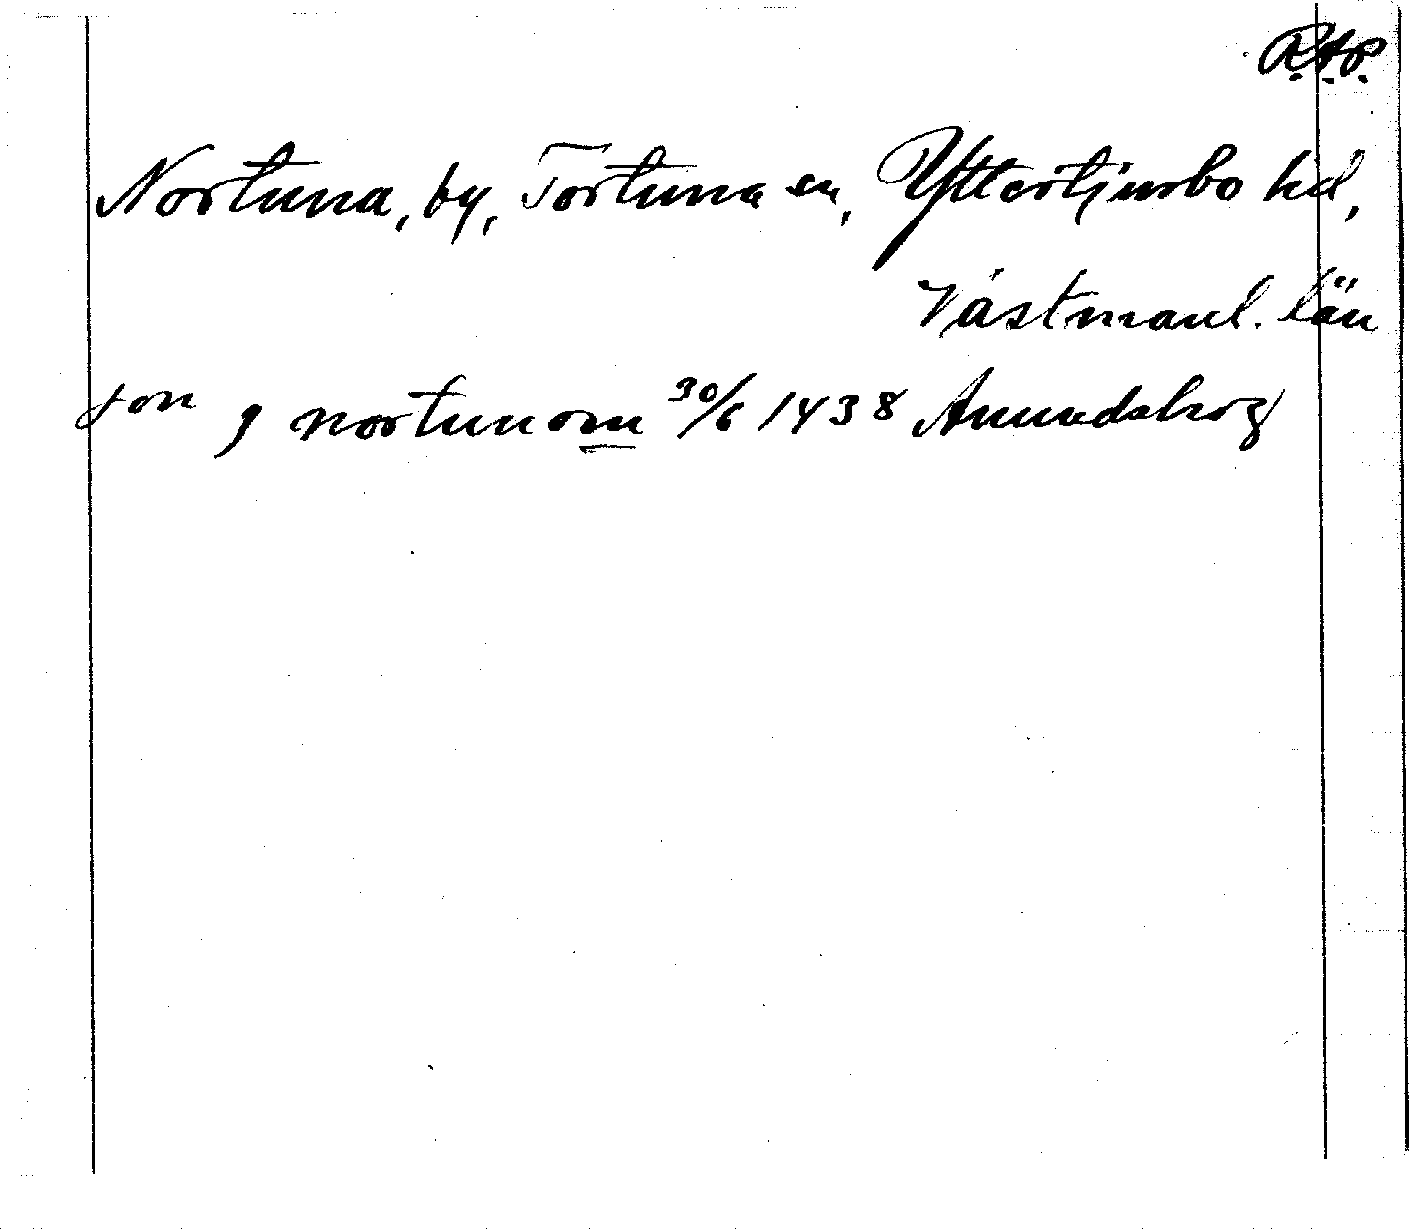 R.A.P.
Nortuna, by, Tortuna sn, Yttertjurbo hd,
Västmanl. län
jon j nortunom 30/6 1438 Anundshög